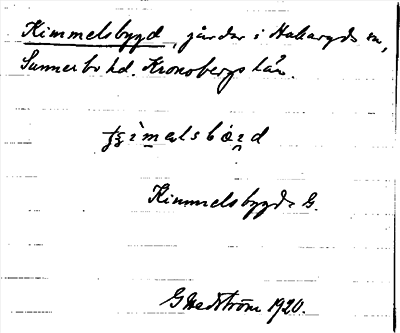 Kimmelsbygd, gårdar i Hallaryds sn,
Sunnerbo hd. Kronobergs län.
Kimmelsbygd G.
G Hedström 1920.